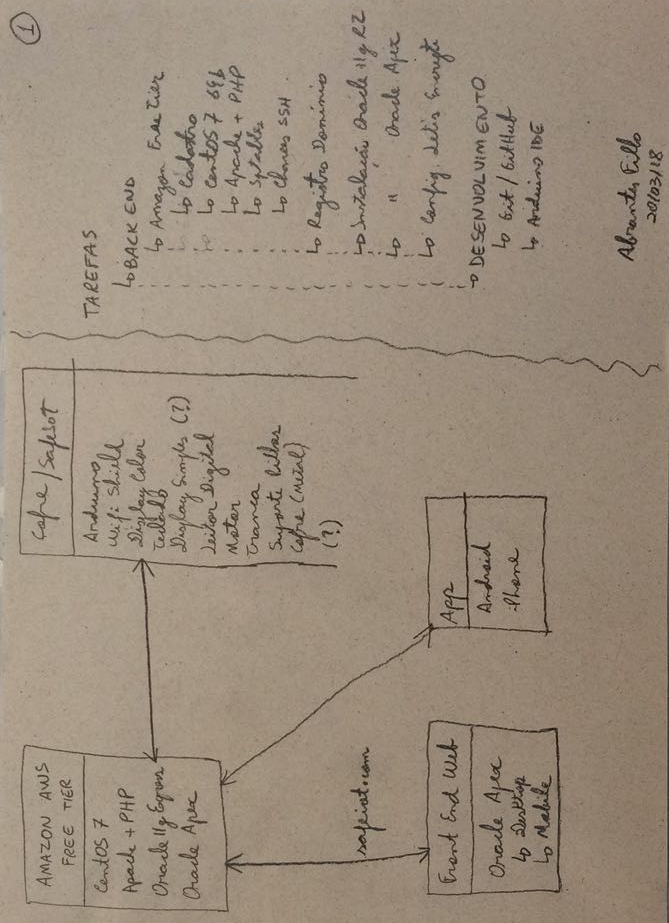 1
AMAZON AWS
FREE TIER
CentOS 7
Apache + PHP
Oracle 11g Express
Oracle Apex
Cofre / SafeIoT
Arduino
Wifi Shield
Display Color
Teclado
Display Simples (?)
Leitor Digital
Motor
Tranca
Suporte Pilhas
Cofre (Metal)
(?)
safeiot.com
Front End Web
Oracle Apex
↳ Desktop
↳ Mobile
App
Android
iPhone
TAREFAS
↳ BACK END
↳ Amazon Free Tier
↳ Cadastro
↳ CentOS 7 64b
↳ Apache + PHP
↳ Iptables
↳ Chaves SSH
↳ Registro Domínio
↳ Instalação Oracle 11g R2
↳ " Oracle Apex
↳ Config. Letis Encrypte
↳ DESENVOLVIMENTO
↳ Git / GitHub
↳ Arduino IDE
Abrantes Filho
20/03/18